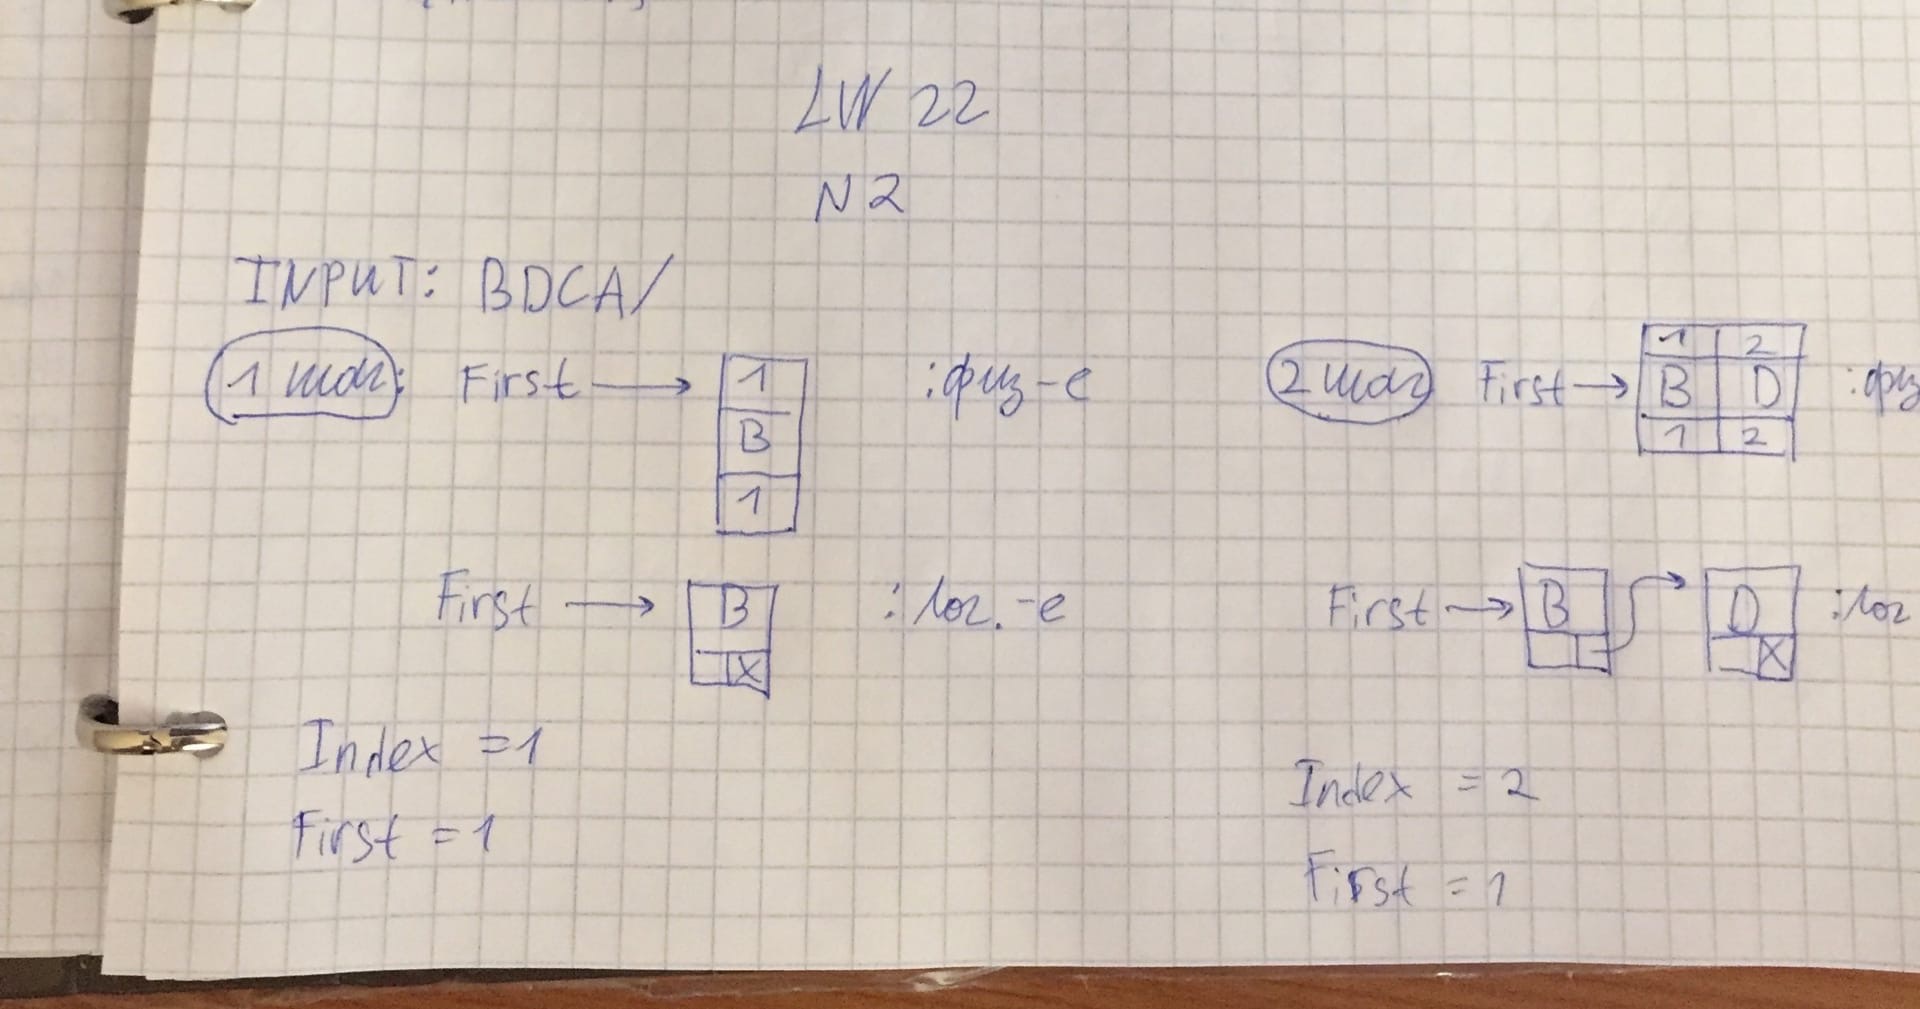 LW 22
N2
INPUT: BDCA/
1 шаг: First → 1 B 1 :физ-е
First → B X :лог.-е
Index = 1
First = 1
2 шаг First → 1 2 B D 1 2 :физ
First → B D X :лог
Index = 2
First = 1